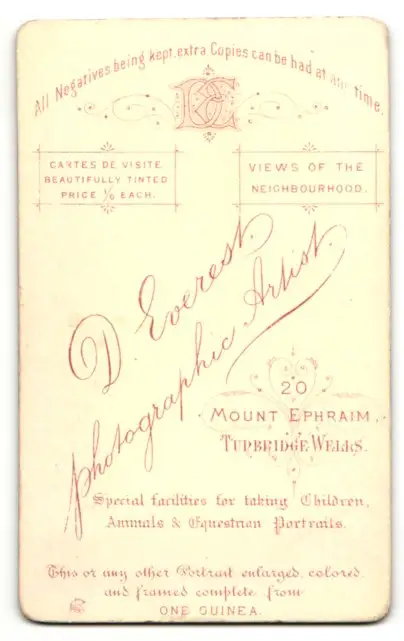 All Negatives being kept, extra Copies can be had at any time.
CARTES DE VISITE
BEAUTIFULLY TINTED
PRICE 1/0 EACH.
VIEWS OF THE
NEIGHBOURHOOD.
D. Everest.
Photographic Artist.
20
MOUNT EPHRAIM,
TUNBRIDGE WELLS.
Special facilities for taking Children,
Animals & Equestrian Portraits.
This or any other Portrait enlarged, colored,
and framed complete from
ONE GUINEA.